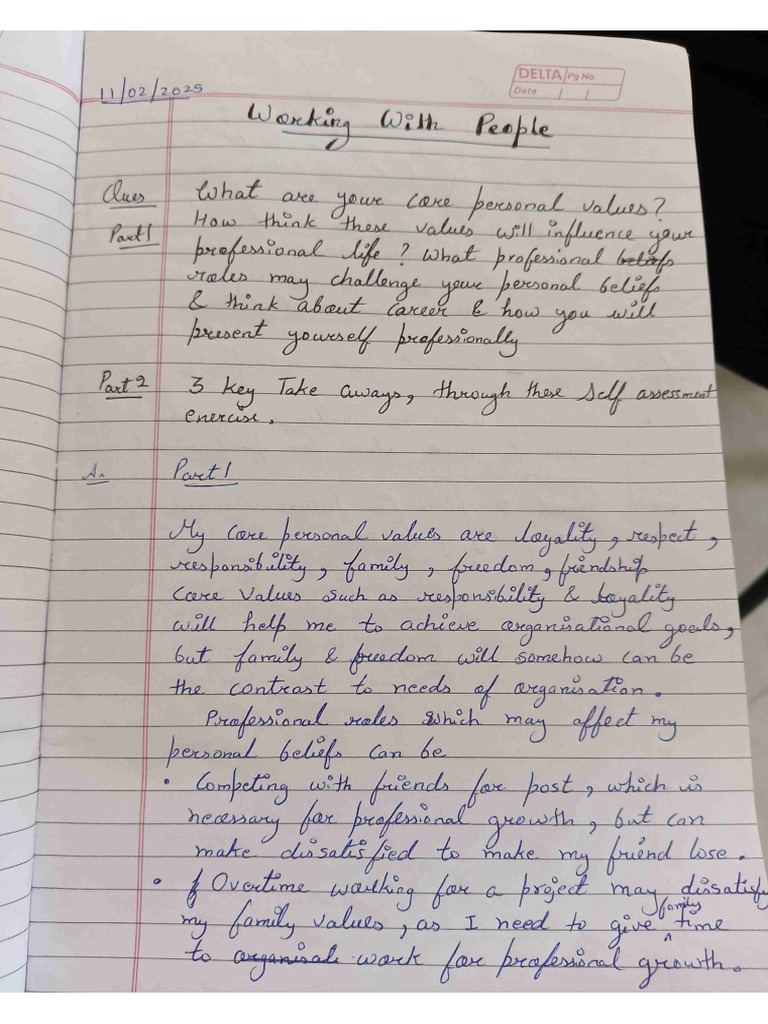 DELTA Pg No.
Date / /
11/02/2025
Working With People
Ques What are your core personal values?
Part 1 How think these values will influence your
professional life? What professional beliefs
roles may challenge your personal beliefs
& think about career & how you will
present yourself professionally
Part 2 3 key Take aways, through these Self assessment
enercise.
A. Part 1
My core personal values are loyality, respect,
responsibility, family, freedom, friendship
core values such as responsibility & loyality
will help me to achieve organisational goals,
but family & freedom will somehow can be
the contrast to needs of organisation.
Professional roles which may affect my
personal beliefs can be
• Competing with friends for post, which is
necessary for professional growth, but can
make dissatisfied to make my friend lose.
• Overtime working for a project may dissatisfy
my family values, as I need to give family time
to organisal work for professional growth.